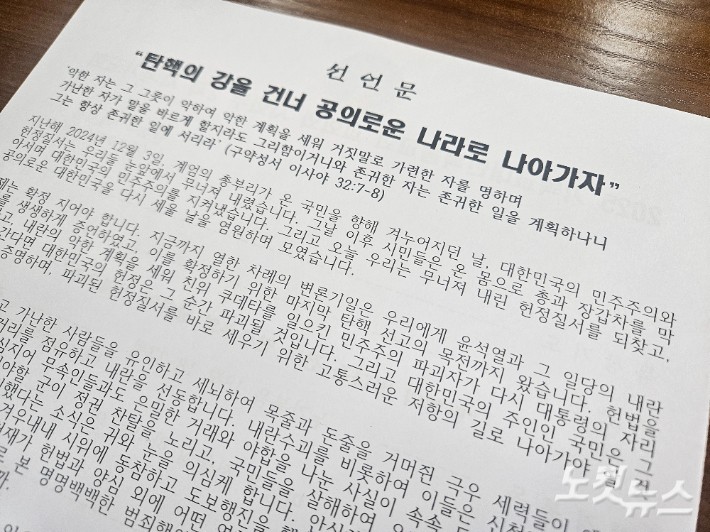 선언문
“탄핵의 강을 건너 공의로운 나라로 나아가자”
'악한 자는 그 그릇이 악하여 악한 계획을 세워 거짓말로 가련한 자를 멸하며
가난한 자가 말을 바르게 할지라도 그리함이거니와 존귀한 자는 존귀한 일을 계획하나니
그는 항상 존귀한 일에 서리라' (구약성서 이사야 32:7-8)
지난해 2024년 12월 3일, 계엄의 총부리가 온 국민을 향해 겨누어지던 날, 대한민국의 민주주의와
헌정질서는 우리들 눈앞에서 무너져 내렸습니다. 그날 이후 시민들은 온 몸으로 총과 장갑차를 막
아서며 대한민국의 민주주의를 지켜냈습니다. 그리고 오늘 우리는 무너져 내린 헌정질서를 되찾고,
공의로운 대한민국을 다시 세울 날을 염원하며 모였습니다.
제는 확정 지어야 합니다. 지금까지 열한 차례의 변론기일은 우리에게 윤석열과 그 일당의 내란
를 생생하게 증언하였고, 이를 확정하기 위한 마지막 탄핵 선고의 목전까지 왔습니다. 헌법을
고, 내란의 악한 계획을 세워 친위 쿠데타를 일으킨 민주주의 파괴자가 다시 대통령의 자리
간다면 대한민국의 헌정은 그 순간 파괴될 것입니다. 그리고 대한민국의 주인인 국민은 그것
증명하며, 파괴된 헌정질서를 바로 세우기 위한 고통스러운 저항의 길로 나아가야 할 것
고 가난한 사람들을 유인하고 세뇌하여 목줄과 돈줄을 거머쥔 극우 세력들이
거리를 점유하고 내란을 선동합니다. 내란수괴를 비롯하여 이들은 신천
심지어 무속인들과도 은밀한 거래와 야합을 나눈 사실이 속속
야할 군이 정권 찬탈을 노리고, 국민들을 살해하여
했다는 소식은 귀와 눈을 의심케 합니다.
겨우내내 시위에 동참하고 도보행진을
재가 헌법과 양심 외에 어떤
로 본 명명백백한 범죄행
노컷뉴스